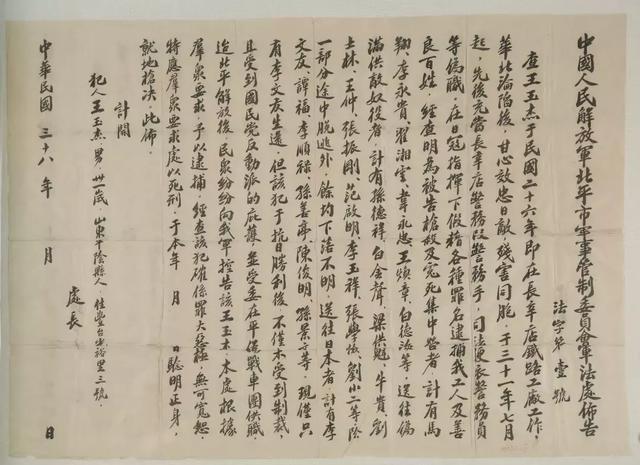 中國人民解放軍北平市軍事管制委員會軍法處佈告
法字第壹號
查王玉杰于民國二十六年即在長辛店鐵路工廠工作，
華北淪陷後，甘心效忠日敵，殘害同胞，于三十一年七月
起，先後充當長辛店警務段警務手，司法便衣警務員
等偽職，在日冦指揮下假藉各種罪名逮捕我工人及善
良百姓，經查明為被告槍殺及寃死集中營者，計有馬
翔、李永貴、翟湘雲、韋永忠、王煥章、白德海等，送往偽
滿供敵奴役者，計有孫德祥、白金聲、梁供魁、牛貴、劉
士林、王仲、張振剛、范啟明、李玉祥、張學恢、劉小二等，除
一部分途中脫逃外，餘均下落不明，送往日本者，計有李
文友、譚福、李順祿、孫善亭、陳俊明、孫景文等，現僅只
有李文友生還，但該犯于抗日勝利後，不僅未受到制裁，
且受到國民党反動派的庇護，並受委在平保戰車團供職，
迨北平解放後，民衆紛紛向我軍控告該王玉杰，本處根據
羣衆要求，予以逮捕，經查該犯確係罪大惡極，無可寬恕，
特應羣衆要求處以死刑，于本年 月 日驗明正身，
就地槍决，此佈。
計開
犯人王玉杰 男 卅一歲 山東平陰縣人 住豐台忠裕里三號，
處長
中華民國 三十八年 月 日